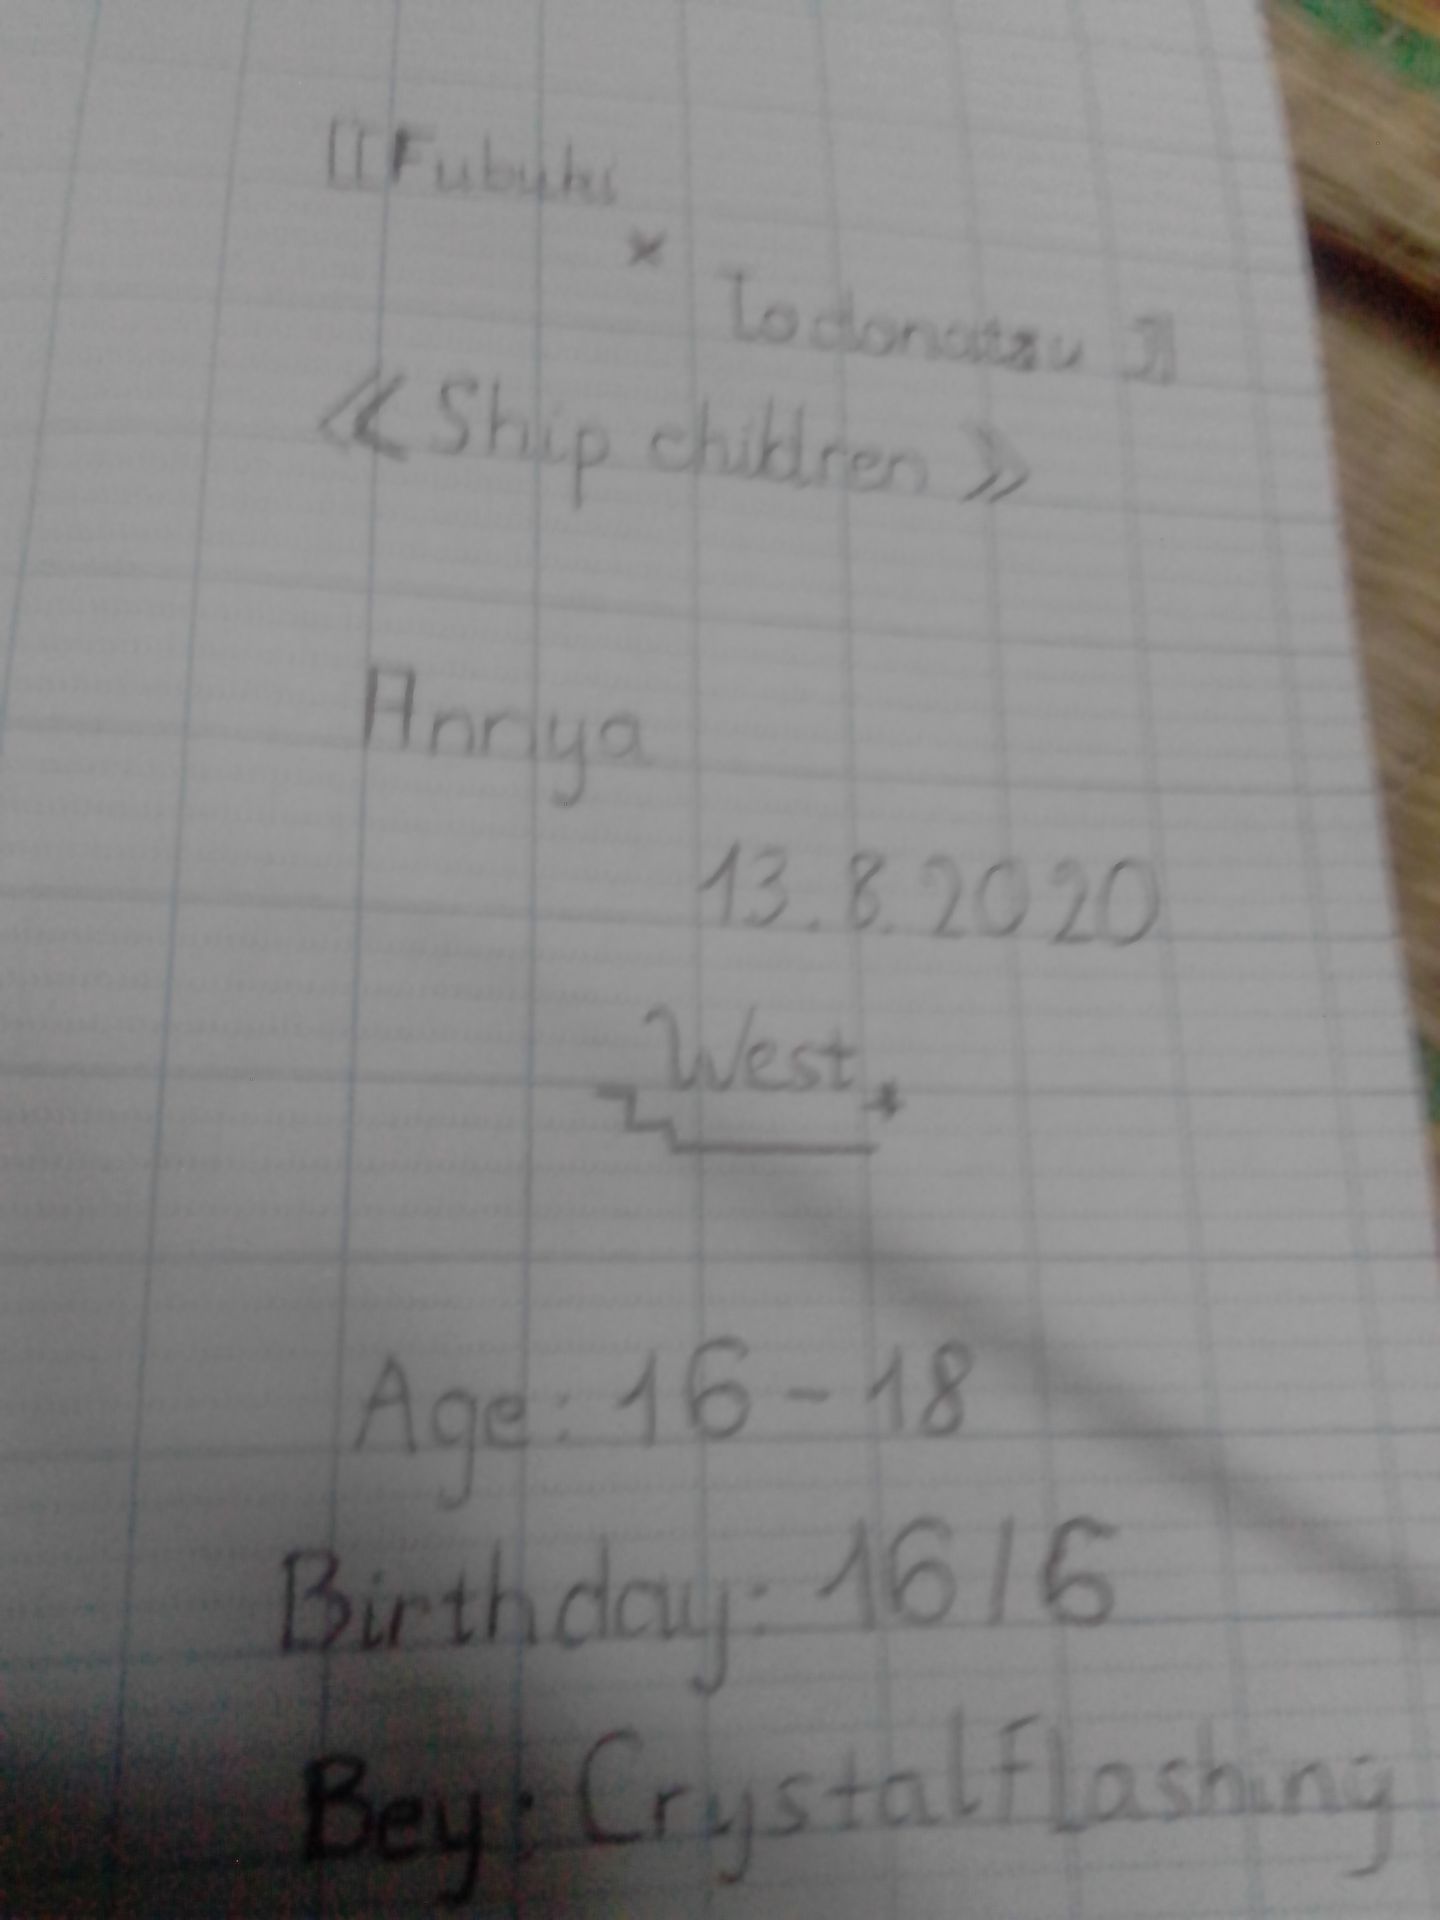 [[Fubuki
×
Todomatsu ]]
《Ship children》
Anriya
13.8.2020
West
Age: 16-18
Birthday: 16/6
Bey: Crystal Flashing